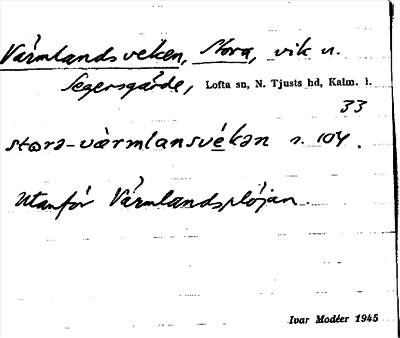 Värmlandsveken, Stora, vik u.
Segersgärde, Lofta sn, N. Tjusts hd, Kalm. l.
33
stora-värmlansvékan s. 104.
Utanför Värmlandsplöjan.
Ivar Modéer 1945